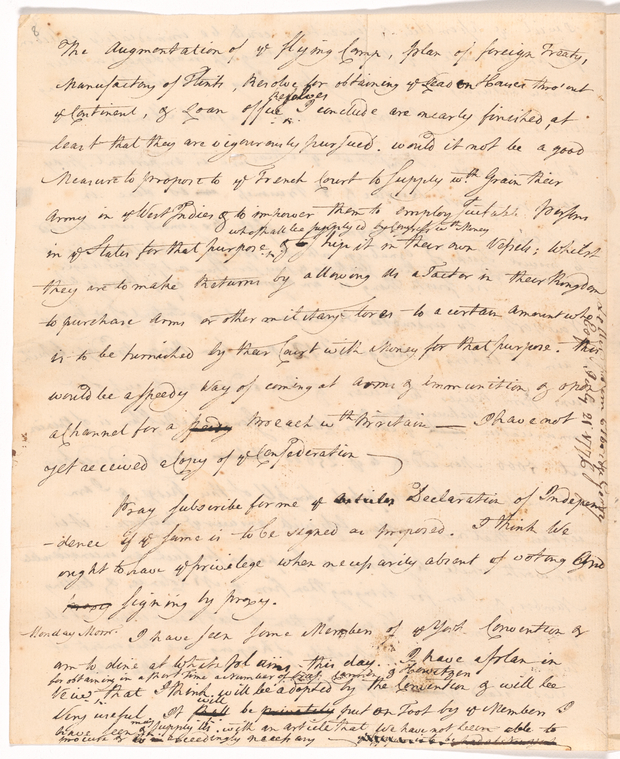 8
The Augmentation of ye flying Camp, plan of foreign Treaty,
Manufactory of Flints, Resolve for obtaining ye Lead on Houses thro'out
ye Continent, & Loan office Resolves I conclude are nearly finished, at
least that they are vigourously pursued. would it not be a good
Measure to propose to ye French Court to supply wth Grain their
Army in ye West Indies & to impower them to employ suitable Persons
who shall be supplyed by Congress wth Money
in ye States for that purpose & to ship it in their own Vessels; whilst
they are to make Returns by allowing us a Factor in their Kingdom
to purchase Arms or other military stores to a certain amount who
is to be furnished by their Court with Money for that purpose. This
would be a speedy way of coming at arms & ammunition & open
a Channel for a speedy Breach wth Britain — I have not
yet received a Copy of ye Confederation —
Pray subscribe for me ye Articles Declaration of Indepen
-dence if ye same is to be signed as proposed. I think We
ought to have ye privilege when necessarily absent of voting and
signing by proxy.
Monday Morn. I have seen some Members of ye York Convention &
am to dine at White plains this day. I have a plan in
for obtaining in a short Time a Number of brass Cannon & Howitzers
View that I think will be adopted by the Convention & will be
very useful. It will be privately put on Foot by ye Members I
have seen & may supply us with an article that We have not been able to
procure & is exceedingly necessary —
July 21 1776